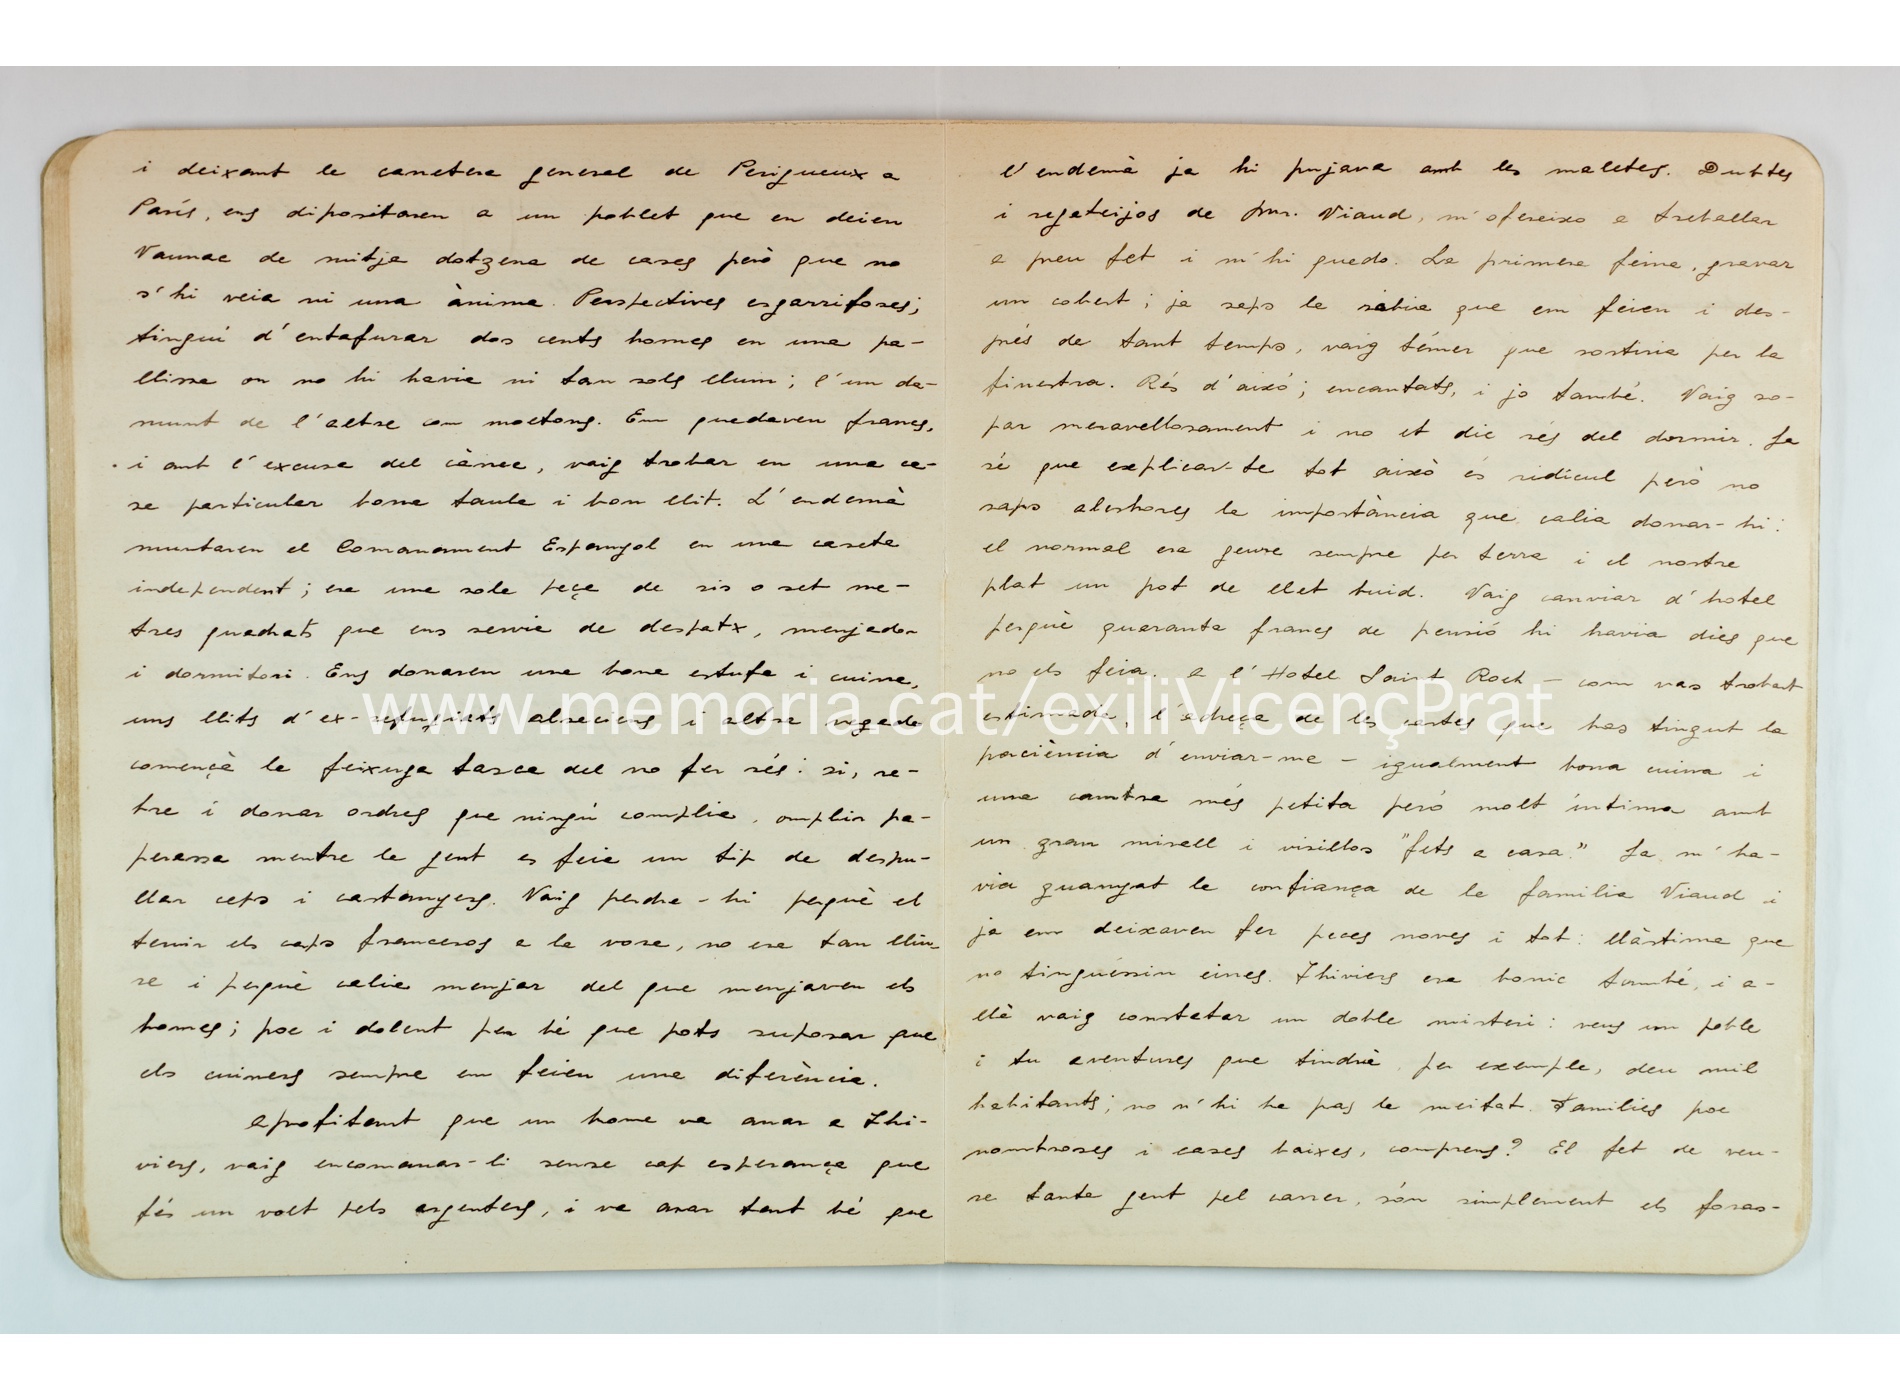 i deixant la carretera general de Perigueux a
París, ens dipositaren a un poblet que en deien
Vaunac de mitja dotzena de cases però que no
s'hi veia ni una ànima. Perspectives esgarrifoses;
tinguí d'entafurar dos cents homes en una pa-
llissa on no hi havia ni tan sols llum; l'un da-
munt de l'altre com moltons. Em quedaven francs,
i amb l'excusa del càrrec, vaig trobar en una ca-
sa particular bona taula i bon llit. L'endemà
muntaren el Comanament Espanyol en una caseta
independent; era una sola peça de sis o set me-
tres quadrats que ens servia de despatx, menjador
i dormitori. Ens donaren una bona estufa i cuina,
uns llits d'ex-refugiats alsacians i altra vegada
començà la feixuga tasca del no fer rés: si, re-
bre i donar ordres que ningú complia, omplir pa-
perassa mentre la gent es feia un tip de despu-
llar ceps i castanyers. Vaig perdre-hi perquè el
tenir els caps francesos a la vora, no era tan lliu-
re i perquè calia menjar del que menjaven els
homes; poc i dolent per bé que pots suposar que
els cuiners sempre em feien una diferència.
Aprofitant que un home va anar a Thi-
viers, vaig encomanar-li sense cap esperança que
fés un volt pels argenters, i va anar tant bé que
l'endemà ja hi pujava amb les maletes. Dubtes
i regateijos de Mr. Viaud, m'ofereixo a treballar
a preu fet i m'hi quedo. La primera feina, gravar
un cobert; ja saps la ràbia que em feien i des-
prés de tant temps, vaig témer que sortiria per la
finestra. Rés d'això; encantats, i jo també. Vaig so-
par meravellosament i no et dic rés del dormir. Ja
sé que explicar-te tot això és ridícul però no
saps aleshores la importància que calia donar-hi:
el normal era jeure sempre per terra i el nostre
plat un pot de llet buid. Vaig canviar d'hotel
perquè quaranta francs de pensió hi havia dies que
no els feia. A l'Hotel Saint Roch – com vas trobart
estimada, l'adreça de les cartes que has tingut la
paciència d'enviar-me – igualment bona cuina i
una cambra més petita però molt íntima amb
un gran mirall i visillos "fets a casa." Ja m'ha-
via guanyat la confiança de la família Viaud i
ja em deixaven fer peces noves i tot: llàstima que
no tinguéssin eines. Thiviers era bonic també, i a-
llà vaig constatar un doble misteri: veus un poble
i tu aventures que tindrà, per exemple, deu mil
habitants; no n'hi ha pas la meitat. Famílies poc
nombroses i cases baixes, comprens? El fet de veu-
re tanta gent pel carrer, són simplement els foras-
www.memoria.cat/exiliVicençPrat